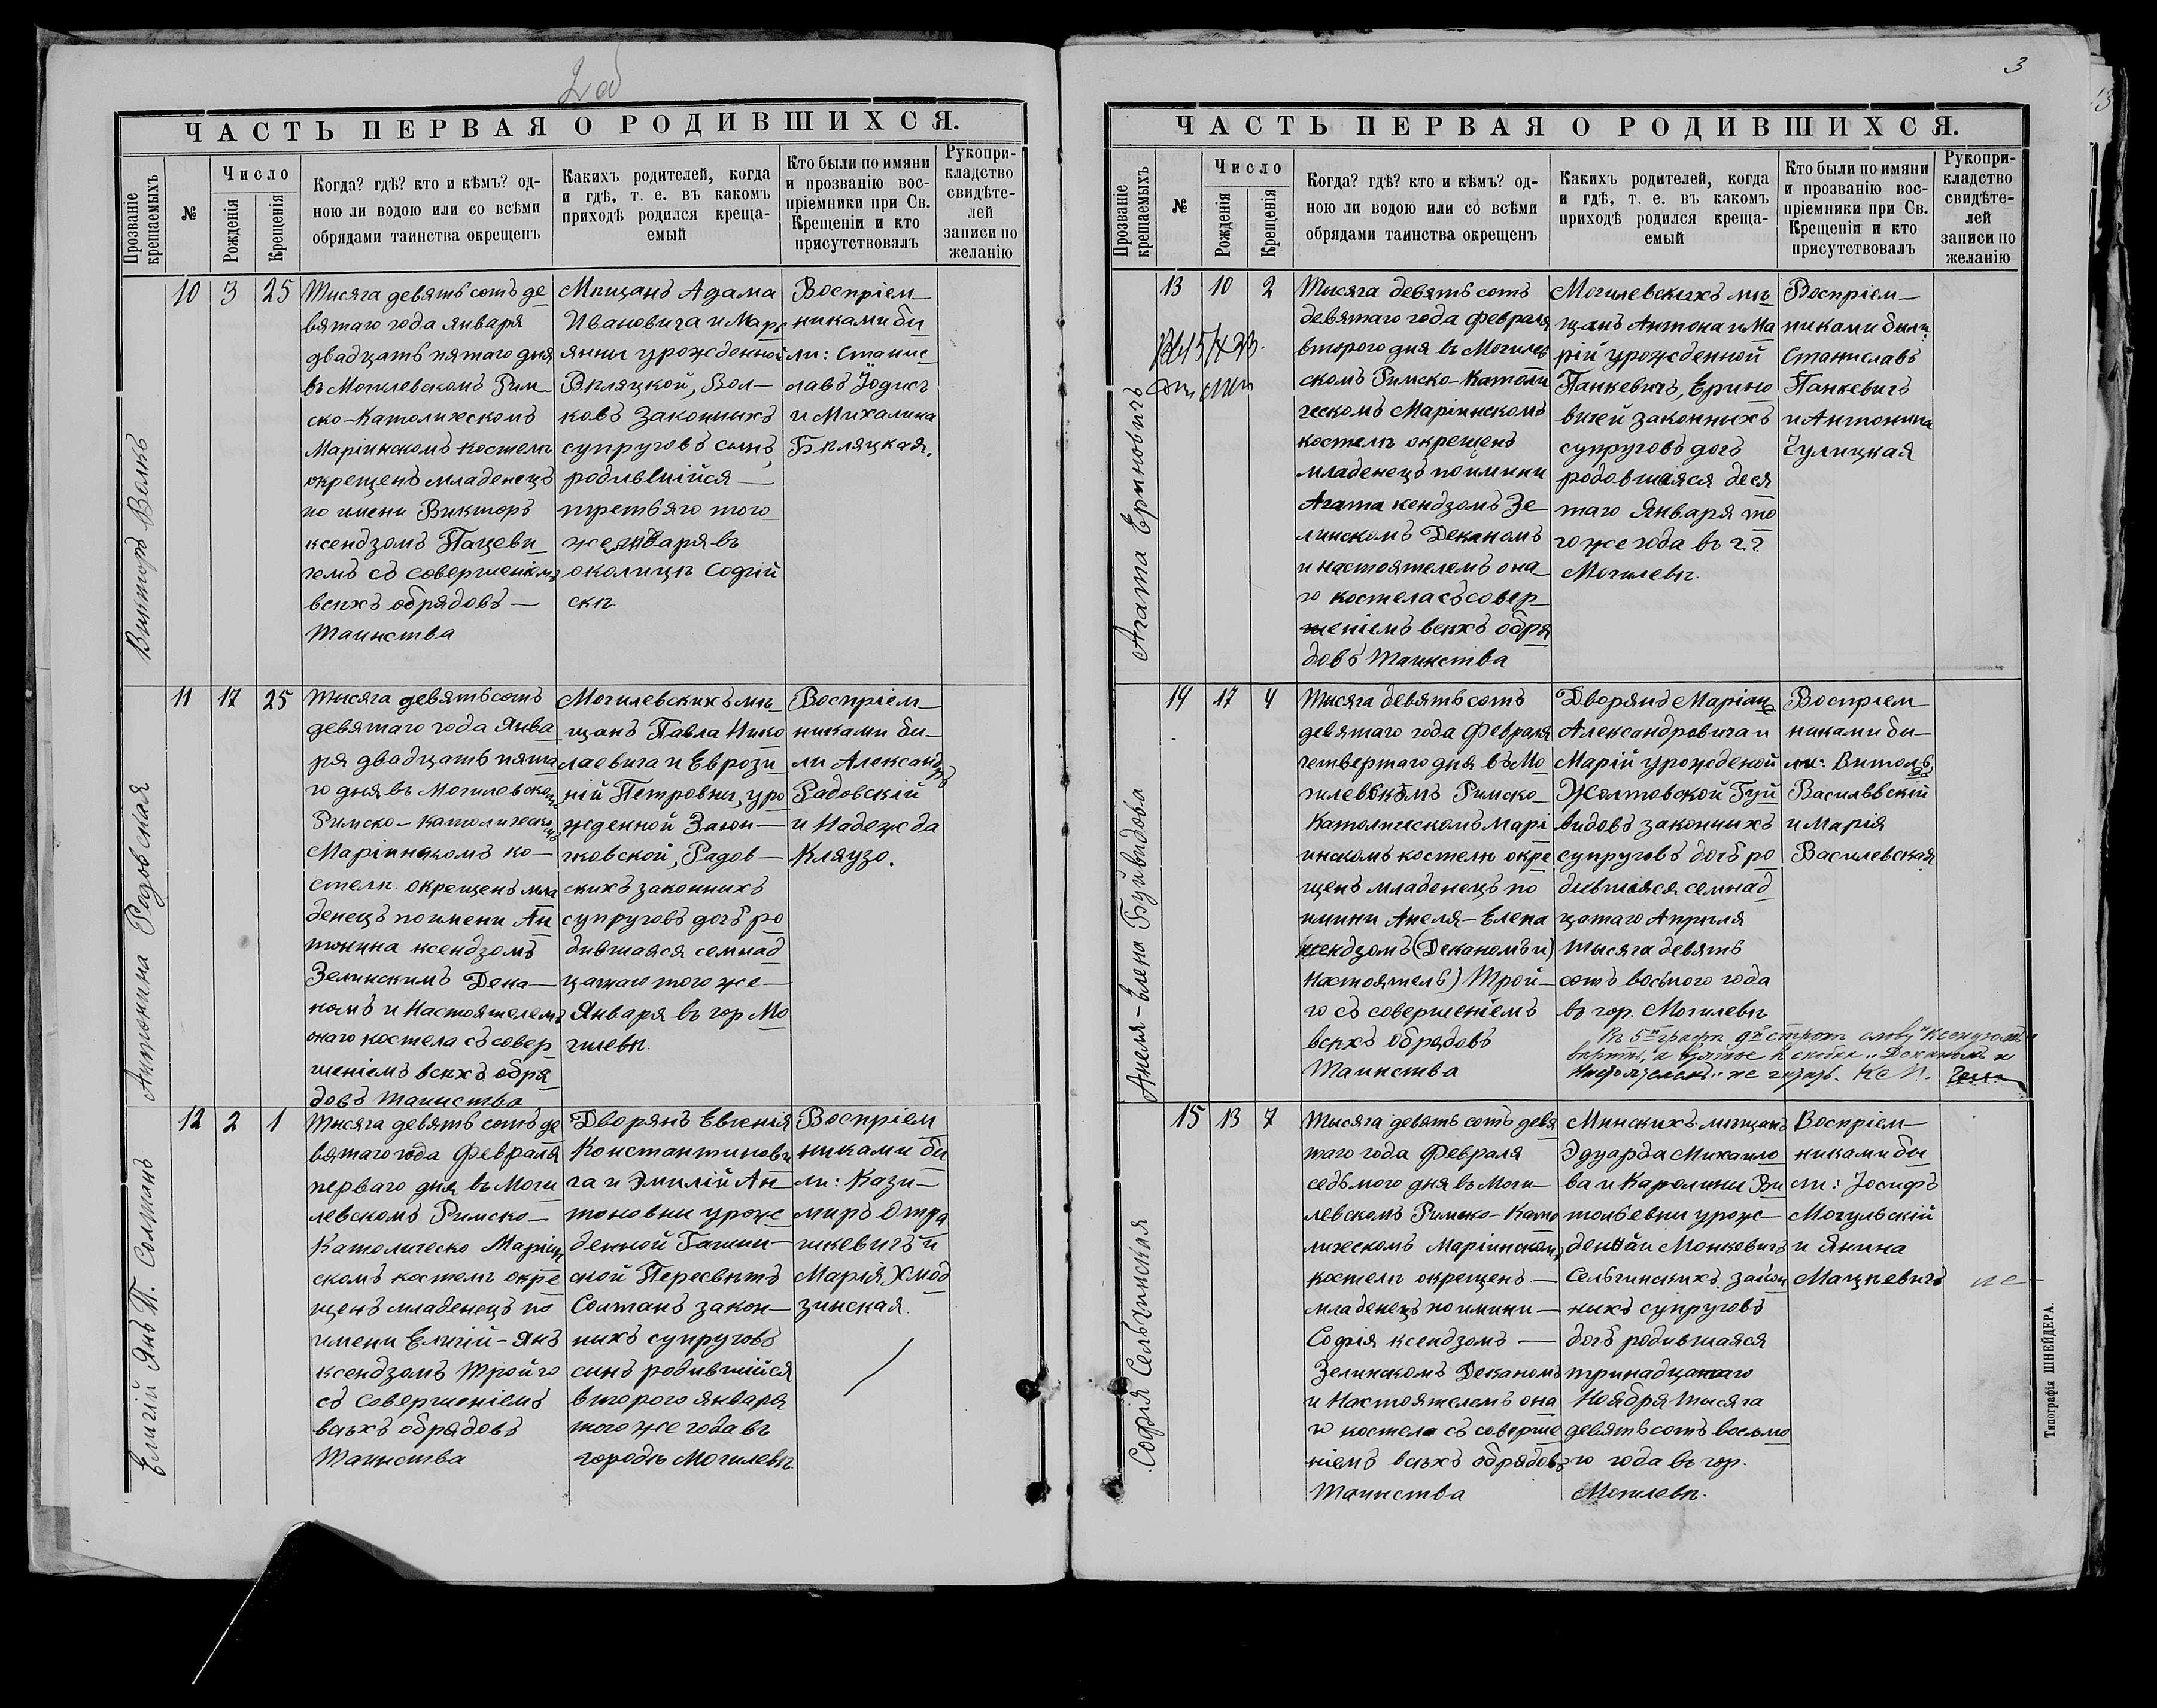 2 об
ЧАСТЬ ПЕРВАЯ О РОДИВШИХСЯ.
Прозваніе крещаемыхъ
№
Число
Рожденія
Крещенія
Когда? гдѣ? кто и кѣмъ? од-
ною ли водою или со всѣми
обрядами таинства окрещенъ
Какихъ родителей, когда
и гдѣ, т. е. въ какомъ
приходѣ родился креща-
емый
Кто были по имяни
и прозванію вос-
пріемники при Св.
Крещеніи и кто
присутствовалъ
Рукопри-
кладство
свидѣте-
лей
записи по
желанію
Викторъ Волкъ
10 3 25
Тысяча девятьсотъ де
вятаго года января
двадцать пятаго дня
въ Могилевскомъ Рим-
ско-Католическомъ
Маріинскомъ костелѣ
окрещенъ младенецъ
по имени Викторъ
ксендзомъ Пацеви
чемъ съ совершеніемъ
всѣхъ обрядовъ —
Таинства
Мѣщанъ Адама
Ивановича и Марі
янны урожденной
Бѣляцкой, Вол-
ковъ законныхъ
супруговъ сынъ,
родившійся —
третьяго того
же января въ
околицѣ Софій
скѣ.
Воспріем-
никами бы
ли: Станис
лавъ Іодисъ
и Михалина
Бѣляцкая.
Антонина Радовская
11 17 25
Тысяча девятьсотъ
девятаго года Янва
ря двадцать пята
го дня въ Могилевскомъ
Римско-Католическомъ
Маріинскомъ ко-
стелѣ окрещенъ мла
денецъ по имени Ан
тонина ксендзомъ
Зелинскимъ Дека-
номъ и Настоятелемъ
онаго костела съ совер
шеніемъ всѣхъ обря
довъ Таинства
Могилевскихъ мѣ
щанъ Павла Нико
лаевича и Еврози
ній Петровны, уро
жденной Заіон-
чковской, Радов-
скихъ законныхъ
супруговъ дочь ро
дившаяся семнад
цатаго того же —
Января въ гор Мо
гилевѣ.
Воспріем-
никами бы-
ли Александръ
Радовскій
и Надежда
Кляузо.
Елигій Янъ П. Солтанъ
12 2 1
Тысяча девятьсотъ де
вятаго года Февраля
перваго дня въ Моги
левскомъ Римско-
Католическо Маріин
скомъ костелѣ окре
щенъ младенецъ по
имени Елигій-Янъ
ксендзомъ Тройго
съ совершеніемъ
всѣхъ обрядовъ
Таинства
Дворянъ Евгенія
Константинови
ча и Эмилій Ан-
тоновны урож
денной
ской Пересвѣтъ
Солтанъ закон-
ныхъ супруговъ
сынъ родившійся
второго января
того же года въ
городѣ Могилевѣ.
Воспріем
никами бы
ли: Кази-
миръ Отра
шкевичъ и
Марія Хмод
зинская.
3
ЧАСТЬ ПЕРВАЯ О РОДИВШИХСЯ.
Прозваніе крещаемыхъ
№
Число
Рожденія
Крещенія
Когда? гдѣ? кто и кѣмъ? од-
ною ли водою или со всѣми
обрядами таинства окрещенъ
Какихъ родителей, когда
и гдѣ, т. е. въ какомъ
приходѣ родился креща-
емый
Кто были по имяни
и прозванію вос-
пріемники при Св.
Крещеніи и кто
присутствовалъ
Рукопри-
кладство
свидѣте-
лей
записи по
желанію
Агата Ериновичъ
13 10 2
Тысяча девятьсотъ
девятаго года февраля
второго дня въ Могилев
скомъ Римско-Католи
ческомъ Маріинскомъ
костелѣ окрещенъ
младенецъ по имини
Агата кендзомъ Зе-
линскомъ Деканомъ
и настоятелемъ она-
го костела съ совер-
шеніемъ всѣхъ обря
довъ Таинства
Могилевскихъ мѣ
щанъ Антона и Ма
рій урожденной
Панкевичъ, Ерино
вичей законныхъ
супруговъ дочь
родовшаяся деся
таго Января то
го же года въ г.
Могилевѣ.
Воспріем-
никами были
Станиславъ
Панкевичъ
и Антонина
Чулицкая
Анеля-Елена Буйвидова
14 17 4
Тысяча девятьсотъ
девятаго года Февраля
четвертаго дня въ Мо-
гилевскомъ Римско-
Католическомъ Марі
инскомъ костелѣ окре
щенъ младенецъ по
имини Анеля-Елена
ксендзомъ (Деканомъ и)
настоятель) Трой-
го съ совершеніемъ
всѣхъ обрядовъ
Таинства
Дворянъ Маріана
Александровича и
Марій урожденой
Жолтовской Буй
видовъ законныхъ
супруговъ дочь ро
дившаяся семнад
цатаго Апрѣля
тысяча девять
сотъ восьмого года
въ гор. Могилевѣ
Воспріем
никами бы-
ли: Витольдъ
Васильвскій
и Марія
Василевская
Софія Сельгинская
15 13 7
Тысяча девятьсотъ девя
таго года Февраля
седьмого дня въ Моги-
левскомъ Римско-Като
лическомъ Маріинскомъ
костелѣ окрещенъ —
младенецъ по имини —
Софія ксендзомъ —
Зелинскомъ Деканомъ
и Настоятелемъ она
го костела съ соверше
ніемъ всѣхъ обрядовъ
Таинства
Минскихъ мѣщанъ
Эдуарда Михаило
ва и Каролины Ви
тольевны урож-
денной Монкевичъ
Сельгинскихъ закон
ныхъ супруговъ
дочь родившаяся
тринадцатаго
Ноября тысяча
девятьсотъ восьмо
го года въ гор.
Могилевѣ.
Воспріем-
никами бы
ли: Іосифъ
Могульскій
и Янина
Мацкевичъ
Типографія ШНЕЙДЕРА.